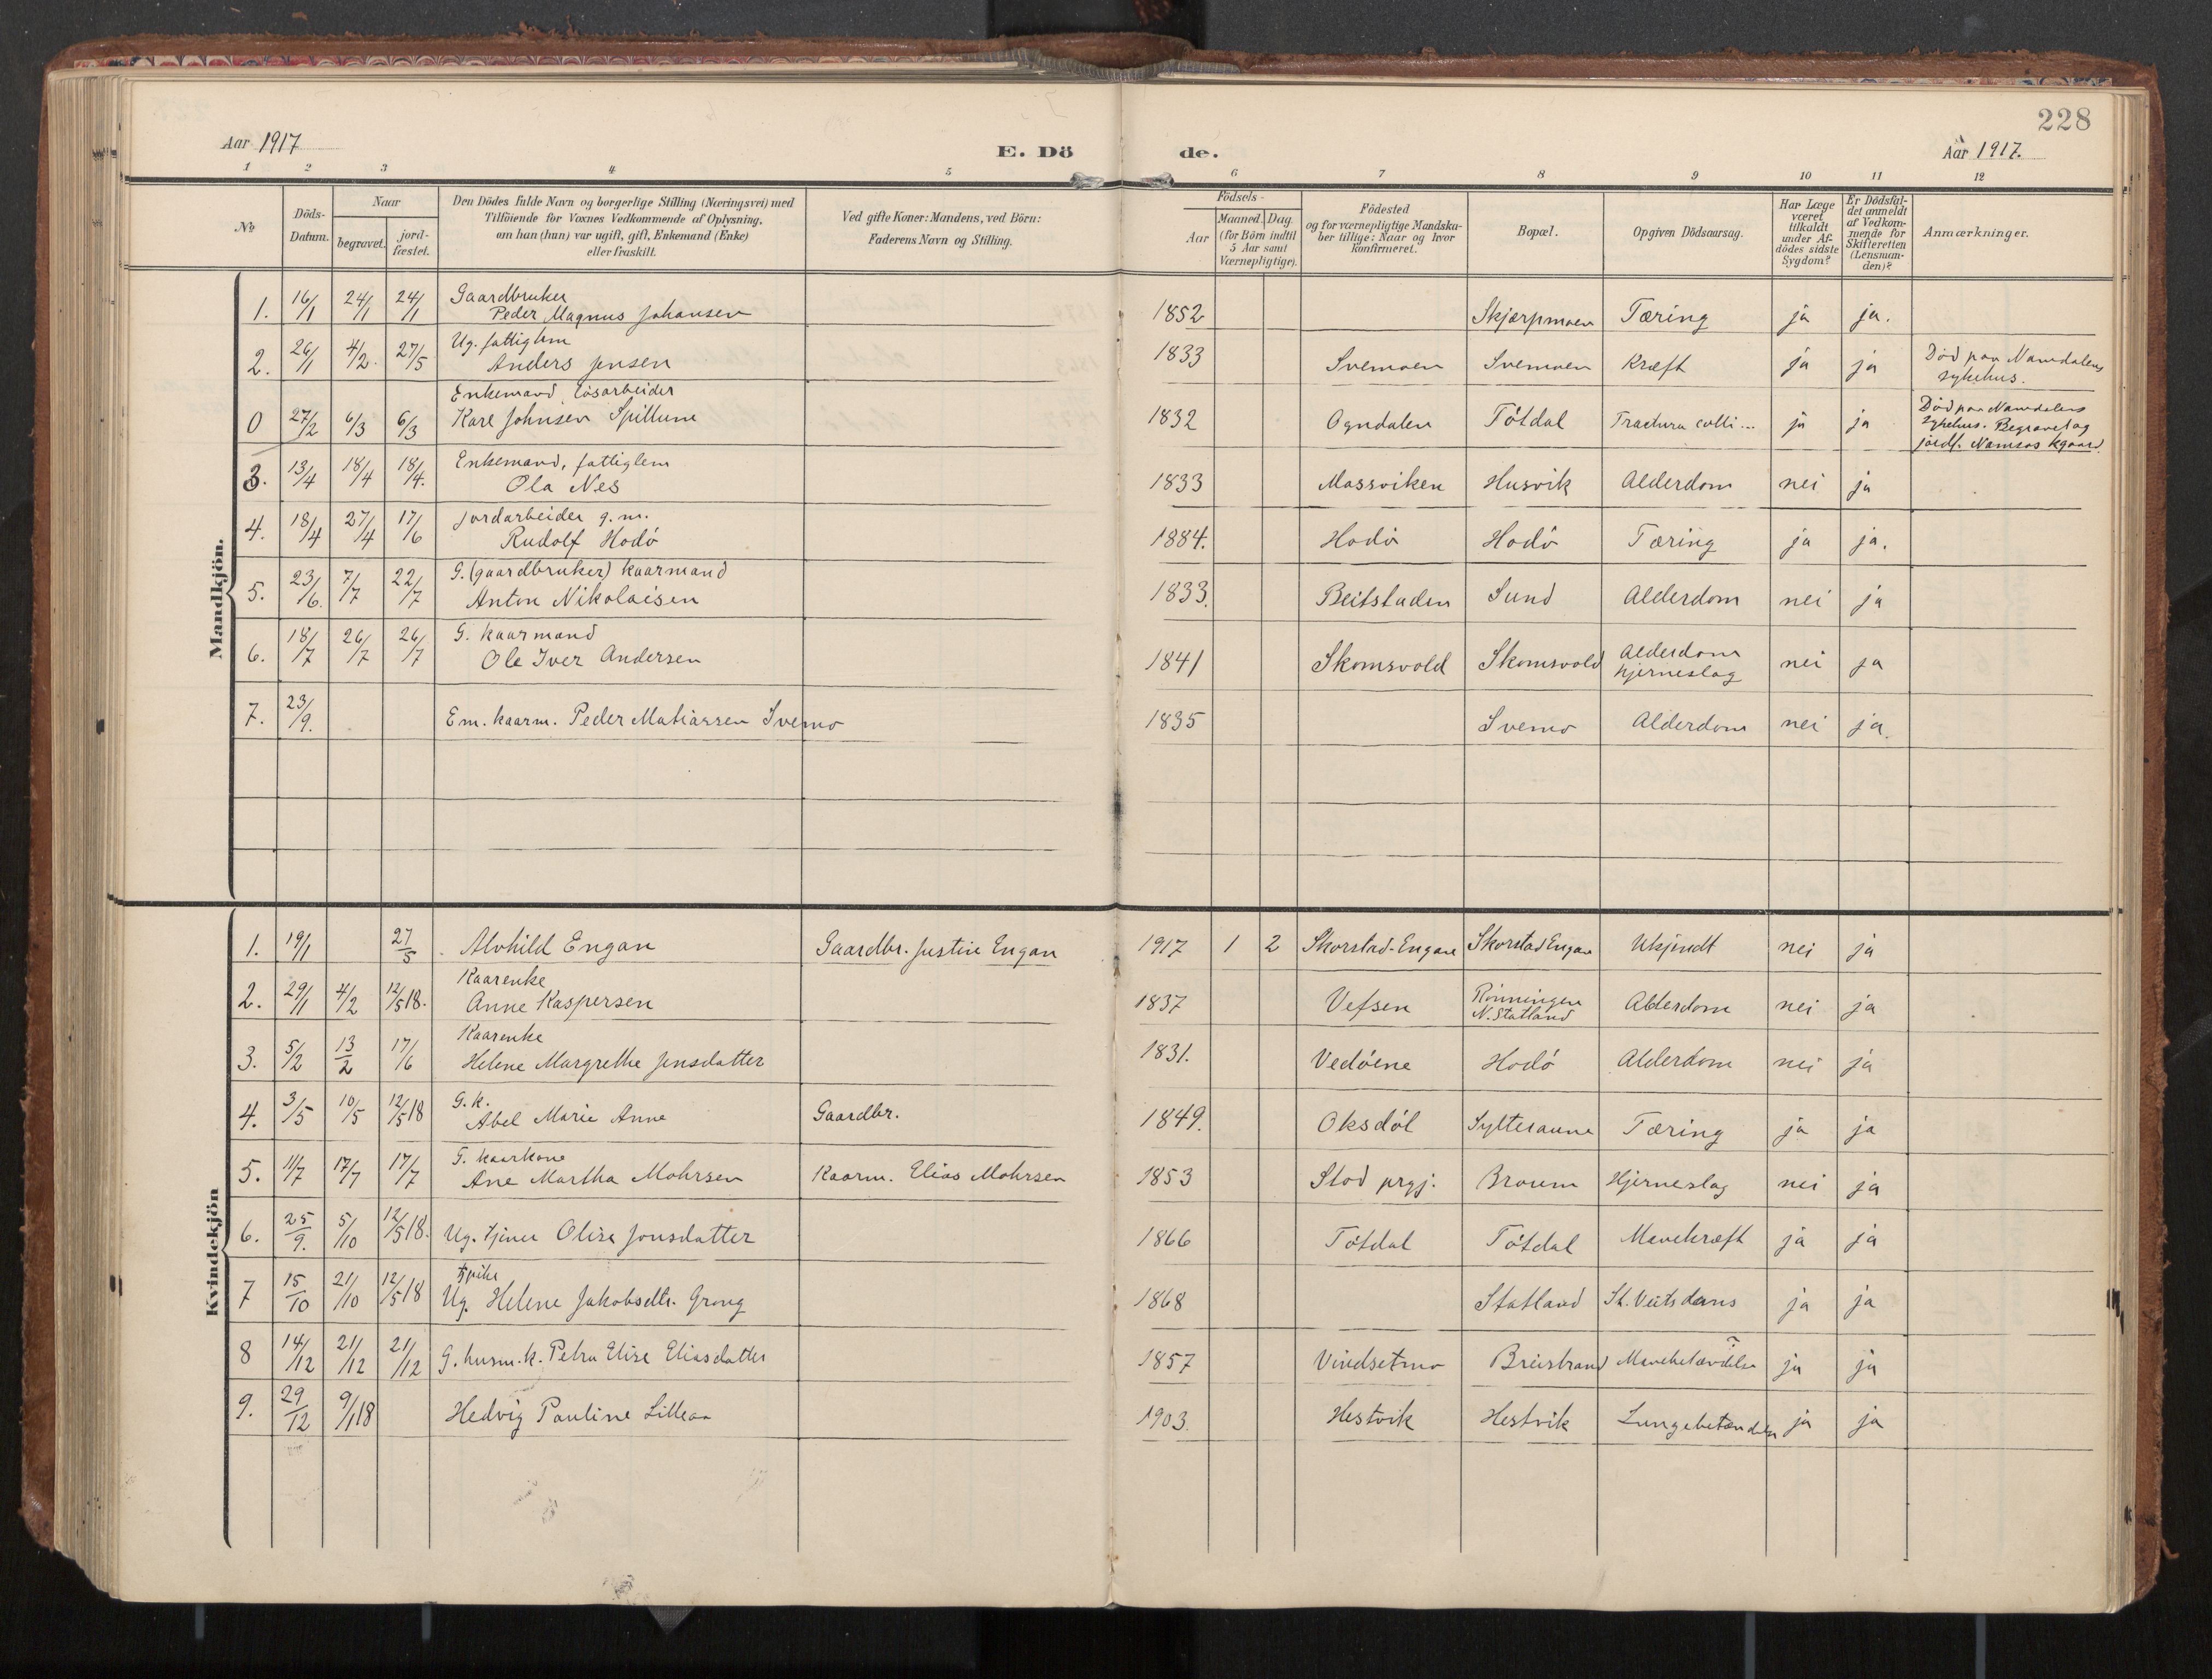 228
Aar 1917
E. Dö
de.
Aar 1917.
1 2 3 4 5 6 7 8 9 10 11 12
№
Döds-
Datum.
Naar
begravet.
jord-
fæstet.
Den Dödes fulde Navn og borgerlige Stilling (Næringsvei) med
Tilföiende for Voxnes Vedkommende af Oplysning,
om han (hun) var ugift, gift, Enkemand (Enke)
eller fraskilt.
Ved gifte Koner: Mandens, ved Börn:
Faderens Navn og Stilling.
Födsels-
Aar
Maaned. Dag.
(for Börn indtil
5 Aar samt
Værnepligtige).
Födested
og for værnepligtige Mandska-
ber tillige: Naar og hvor
konfirmeret.
Bopæl.
Opgiven Dödsaarsag.
Har Læge
været
tilkaldt
under Af-
dödes sidste
Sygdom?
Er Dödsfal-
det anmeldt
af Vedkom-
mende for
Skifteretten
(Lensman-
den)?
Anmærkninger.
Mandkjön.
1. 16/1 24/1 24/1 Gaardbruker
Peder Magnus Johansen 1852 Skjærpmoen Tæring ja ja.
2. 26/1 4/2. 27/5 Ug. fattiglem
Anders Jensen 1833 Svemoen Svemoen Kræft ja ja Död paa Namdalens
sykehus.
0 27/2 6/3 6/3 Enkemand, lösarbeider
Karl Johnsen Spillum 1832 Ogndalen Tötdal Fractura colli... ja ja Död paa Namdalens
sykehus. Begravet og
jordf. Namsos kgaard.
3. 13/4 18/4 18/4. Enkemand, fattiglem
Ola Nes 1833 Massviken Husvik Alderdom nei ja
4. 18/4 27/4 17/6 Jordarbeider g.m.
Rudolf Hodö 1884. Hodö Hodö Tæring ja ja.
5. 23/6. 7/7 22/7 G. (gaardbruker) kaarmand
Anton Nikolaisen 1833. Beitstaden Sund Alderdom nei ja
6. 18/7 26/7 26/7 G. kaarmand
Ole Iver Andersen 1841 Skomsvold Skomsvold Alderdom
hjerneslag nei ja
7. 23/9. Em. kaarm. Peder Matiassen Svemo 1835 Svemo Alderdom nei ja.
Kvindekjön
1. 19/1 27/5 Alvhild Engan Gaardbr. Justin Engan 1917 1 2 Skorstad-Engan Skorstad Engan Ukjendt nei ja
2. 29/1 4/2 12/5 18. Kaarenke
Anne Kaspersen 1837 Vefsen Rönningen
N. Statland Alderdom nei ja
3. 5/2 13/2 17/6 Kaarenke
Helene Margrethe Jensdatter 1831. Vedöene Hodö Alderdom nei ja
4. 3/5 10/5 12/5 18 G.k.
Abel Marie Anne Gaardbr. 1849. Oksdöl Sylteraune Tæring ja ja
5. 11/7 17/7 17/7 G. kaarkone
Ane Martha Mohrsen Kaarm. Elias Mohrsen 1853 Stod prgj. Braum Hjerneslag nei ja
6. 25/9. 5/10 12/5 18. Ug. tjener Olise Jonsdatter 1866 Tötdal Tötdal Mavekræft ja ja
7 15/10 21/10 12/5 18 Ug. Helene Jakobsdtr. Grong 1868 Statland St. Veitsdans ja ja
8 14/12 21/12 21/12 G. husm.k. Petra Elise Eliasdatter 1857 Vindsetmo Breistrand Mavebetændelse ? ja ja
9. 29/12 9/1 18 Hedvig Pauline Lilleaa 1903. Hestvik Hestvik Lungebetændelse ja ja